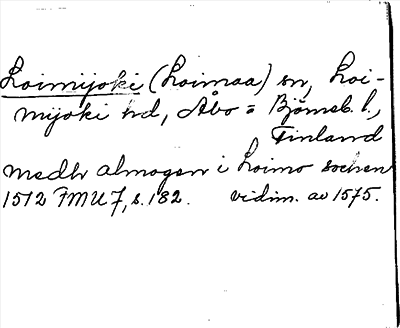 Loimijoki (Loimaa) sn, Loi-
mijoki hd, Åbo = Björneb. l.,
Finland
medh almogen i Loimo sochen
1512 FMU 7, s. 182. vidim. av 1575.